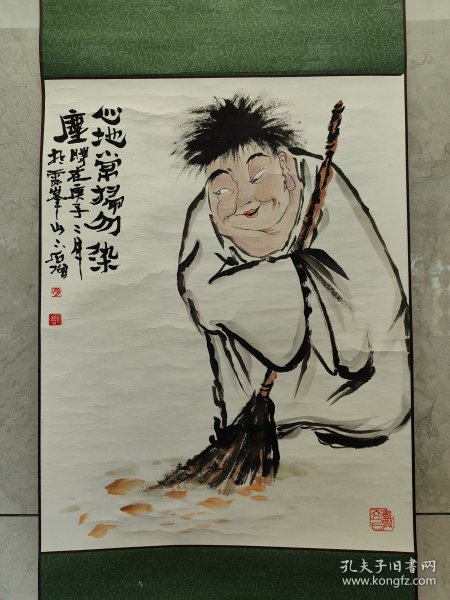 心地常掃勿染
塵時在庚子二月
於雲峯山下石增
孔夫子旧书网
www.kongfz.com